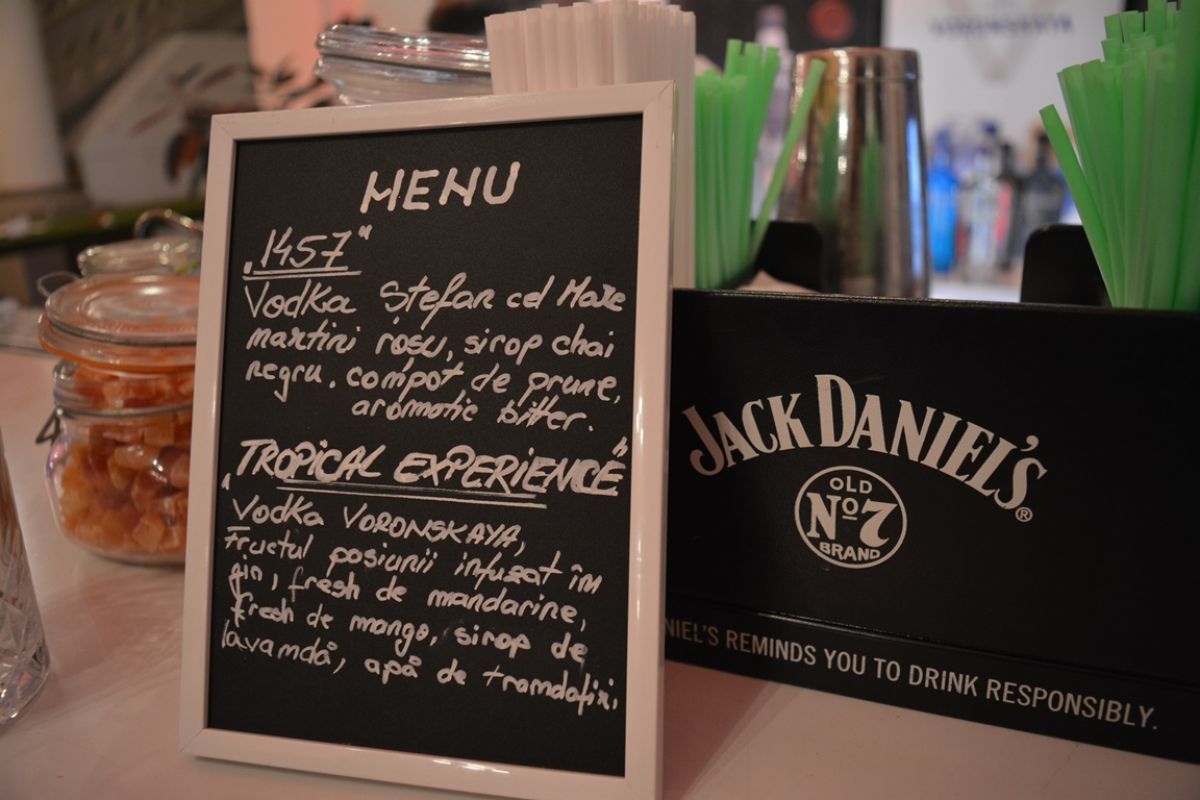 MENU
„1457"
Vodka Stefan cel Mare
martini roșu, sirop chai
negru, compot de prune,
aromatic bitter.
„TROPICAL EXPERIENCE"
Vodka VORONSKAYA,
Fructul pasiunii infuzat îm
gin, fresh de mandarine,
fresh de mango, sirop de
lavamdă, apă de tramdafixi,
JACK DANIEL'S®
OLD
Nº7
BRAND
NIEL'S REMINDS YOU TO DRINK RESPONSIBLY.